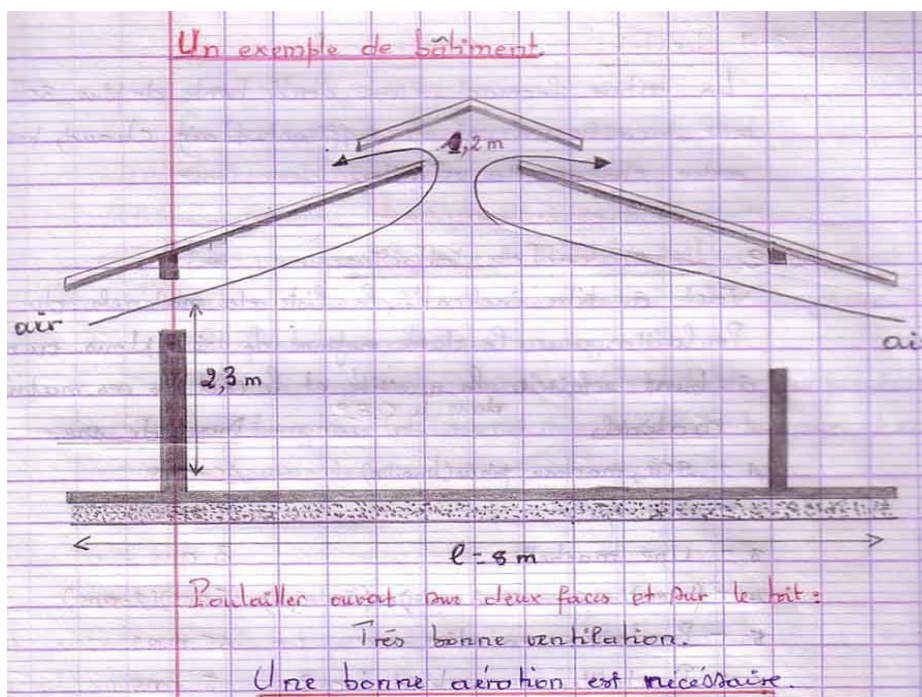 Un exemple de bâtiment
1,2 m
air
ai
2,3 m
l = 8 m
Poulailler ouvert sur deux faces et sur le toit :
Très bonne ventilation.
Une bonne aérotion est nécéssaire.